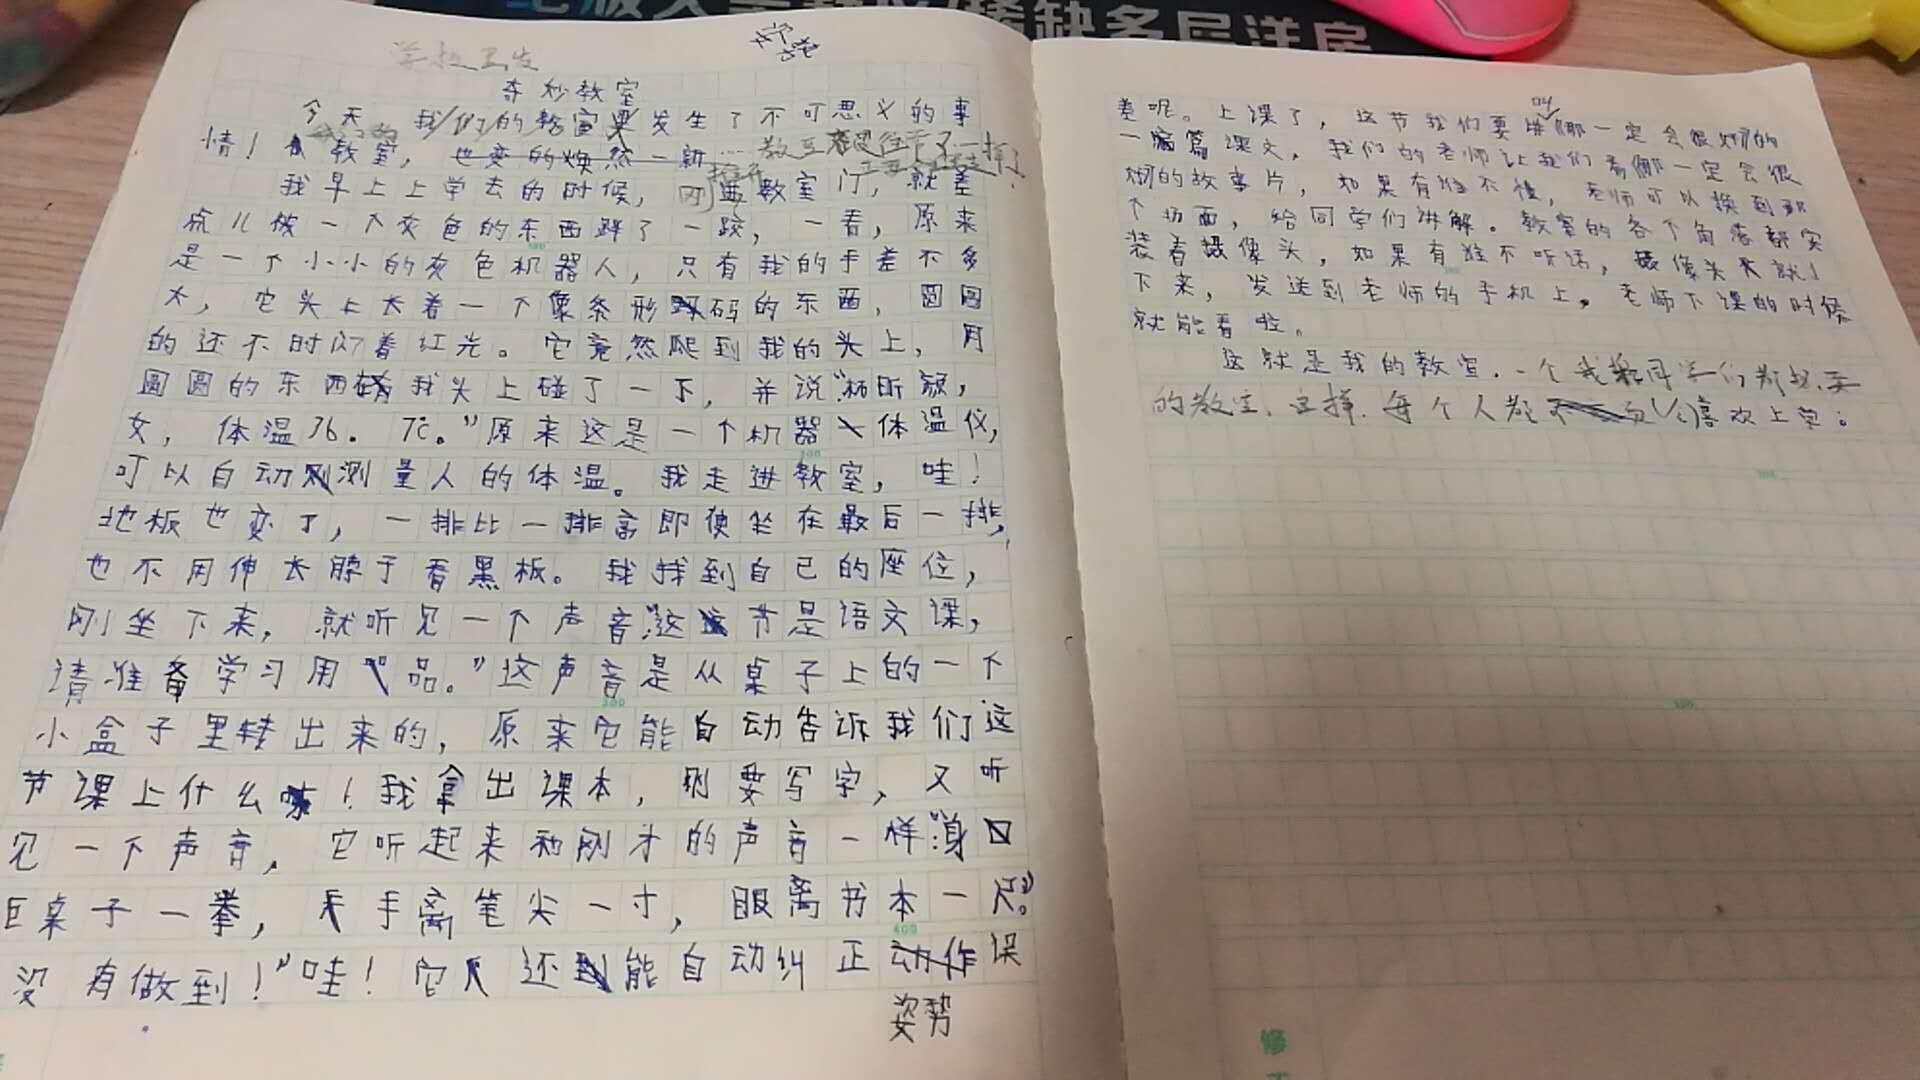 奇妙教室
今天，我们的教室里发生了不可思议的事
情！教室，也变的焕然一新
我早上上学去的时候，刚进教室门，就差
点儿被一个灰色的东西绊了一跤，一看，原来
是一个小小的灰色机器人，只有我的手差不多
大，它头上长着一个像条形码的东西，圆圆
的还不时闪着红光。它竟然爬到我的头上，用
圆圆的东西我头上碰了一下，并说“杨昕颖，
女，体温36.7℃。”原来这是一个机器体温仪，
可以自动测量人的体温。我走进教室，哇！
地板也变了，一排比一排高即使坐在最后一排，
也不用伸长脖子看黑板。我找到自己的座位，
刚坐下来，就听见一个声音“这节是语文课，
请准备学习用品。”这声音是从桌子上的一个
小盒子里转出来的，原来它能自动告诉我们这
节课上什么嘛！我拿出课本，刚要写字，又听
见一个声音，它听起来和刚才的声音一样“身
距桌子一拳，手离笔尖一寸，眼离书本一尺。”
没有做到！”哇！它还能自动纠正动作误
姿势
差呢。上课了，这节我们要讲《那一定会很好》的
一篇课文，我们的老师让我们看那一定会很
好的故事片，如果有谁不懂，老师可以换到那
个场面，给同学们讲解。教室的各个角落都安
装着摄像头，如果有谁不听话，摄像头就
下来，发送到老师的手机上，老师下课的时候
就能看啦。
这就是我的教室，一个我和同学们都
的教室，这样，每个人都喜欢上学。